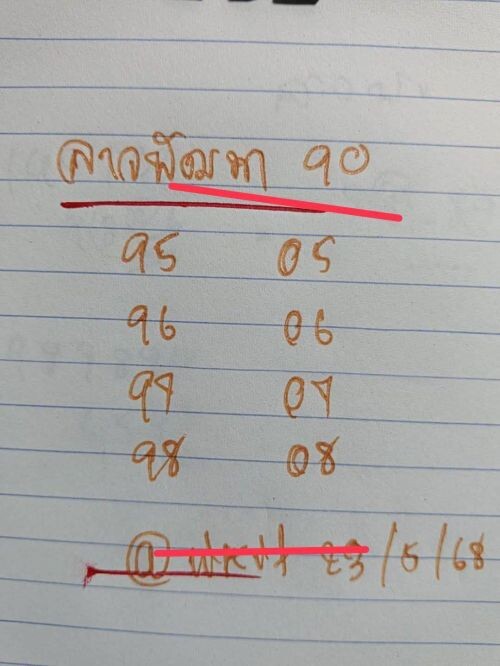 ลาวพัฒนา 90
95 05
96 06
97 07
98 08
23/5/68